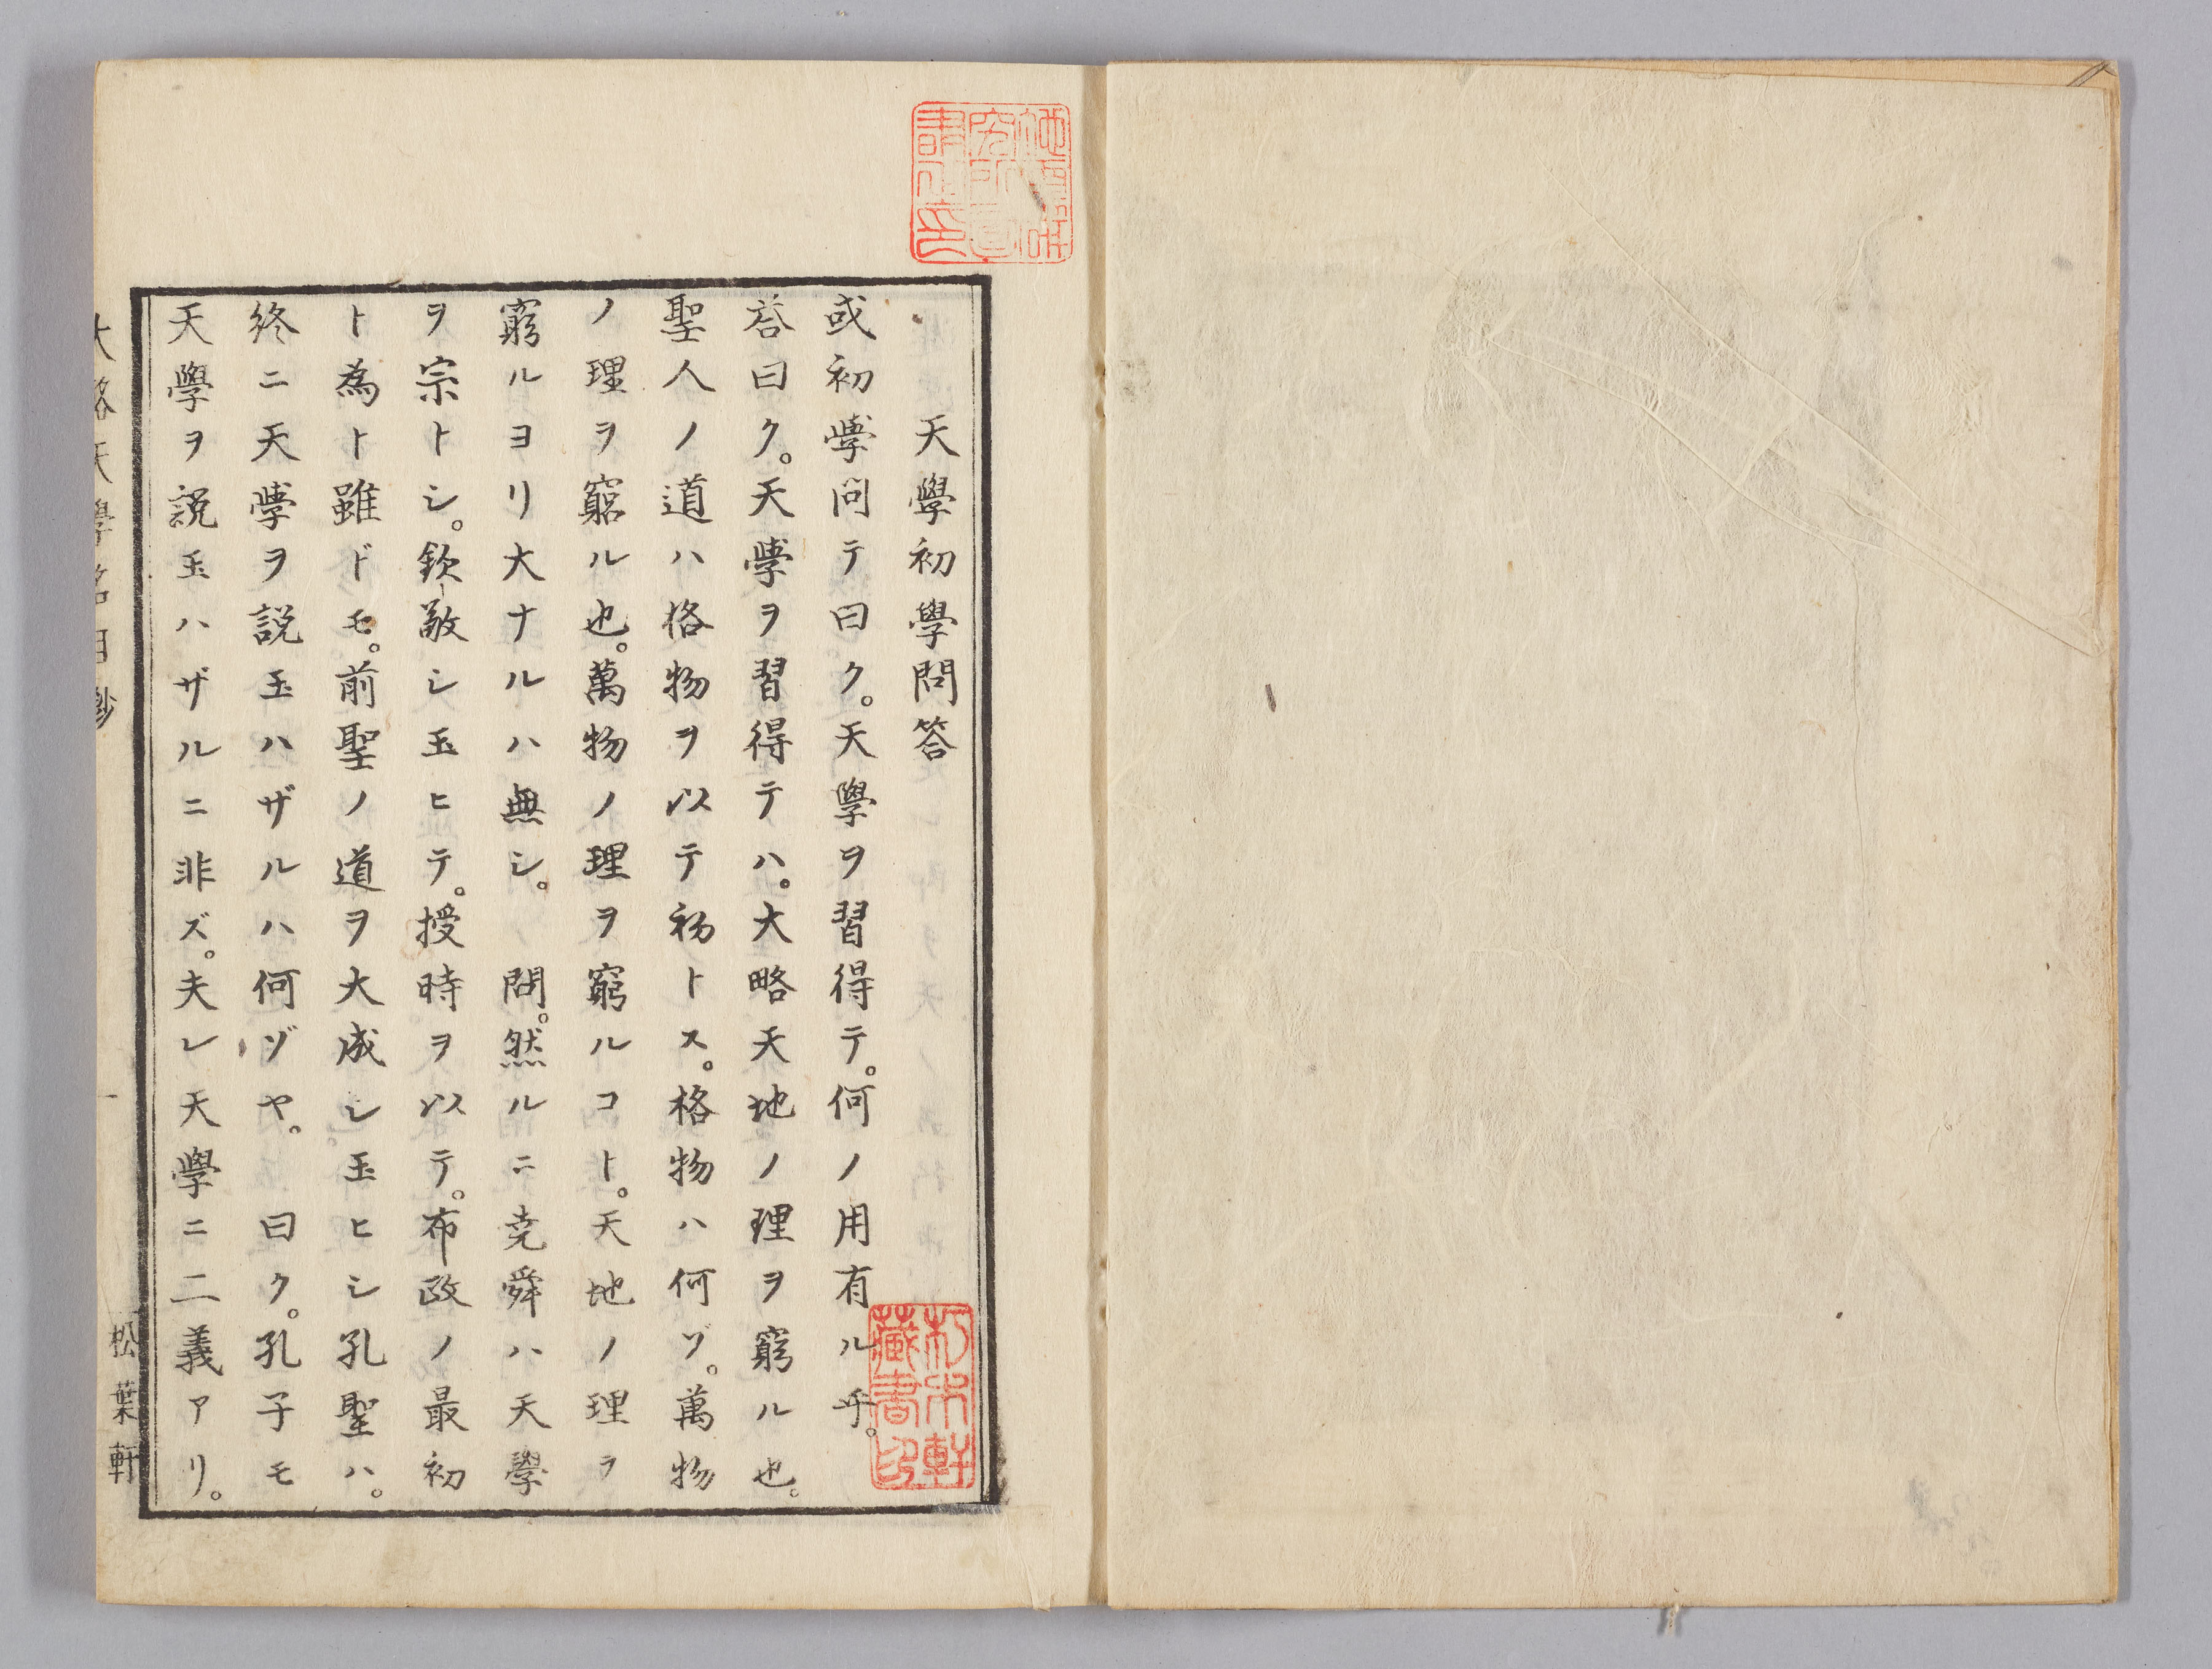 天學初學問答
或初學問テ曰ク。天學ヲ習得テ。何ノ用有ル乎。
荅曰ク。天學ヲ習得テハ。大略天地ノ理ヲ窮ル也。
聖人ノ道ハ格物ヲ以テ初トス。格物ハ何ゾ。萬物
ノ理ヲ窮ル也。萬物ノ理ヲ窮ルコト。天地ノ理ヲ
窮ルヨリ大ナルハ無シ。 問。然ルニ尭舜ハ天學
ヲ宗トシ。欽敬シ玉ヒテ。授時ヲ以テ。布政ノ最初
ト為ト雖ドモ。前聖ノ道ヲ大成シ玉ヒシ孔聖ハ。
終ニ天學ヲ説玉ハザルハ何ゾヤ。 曰ク。孔子モ
天學ヲ説玉ハザルニ非ズ。夫レ天學ニ二義アリ。
大略天學名目鈔 一 松葉軒
藏書印